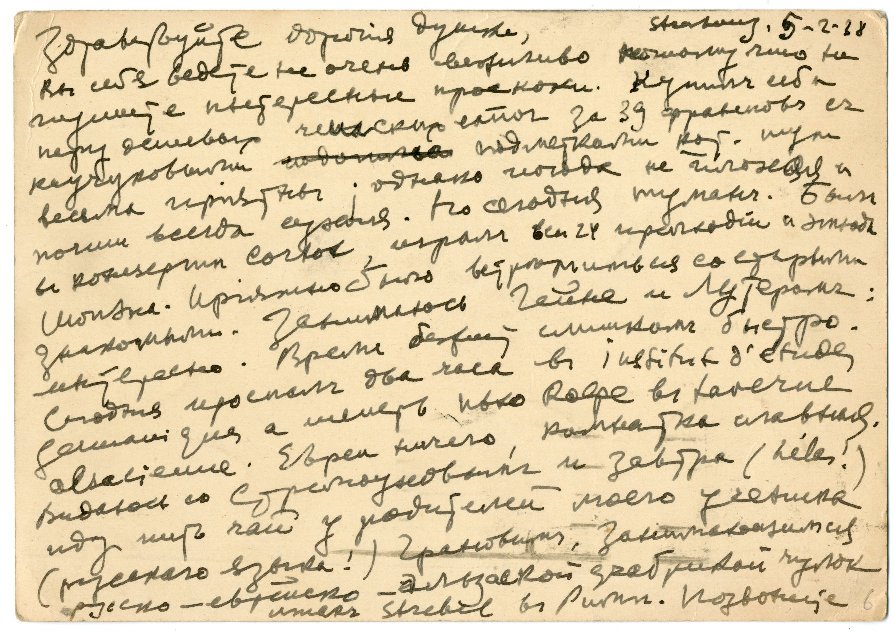 Здравствуйте дорогия душки, Strasbourg. 5-2-38
вы себя ведете не очень вежливо потому что не
пишете интересные происки. Купилъ себѣ
пару дешевых чешских ботог за 39 франковъ съ
каучуковыми подметками кот. туги
весьма пріятны; однако погода не плохая и
почти всегда сухая. Но сегодня туманъ. Былъ
в концерте Cortot, игралъ все 24 прелюдіи и этюды
Шопэна. Пріятно было встретиться со старыми
знакомыми. Занимаюсь Гейне и Лутеромъ:
интересно. Время бежит слишкомъ быстро.
Сегодня проспалъ два часа въ institut d'etudes
germaniques а теперь пью кофе въ taverne
alsacienne. Евреи ничего, комнатка славная.
Видаюсь со Стремоуховымъ и завтра (hélas!)
иду пить чай у родителей моего ученика
(русскаго языка!) Грановымъ, занимающимся
русско-еврейско-эльзаской фабрикой чулок
имени Strebel въ Pieтин. Позвоните